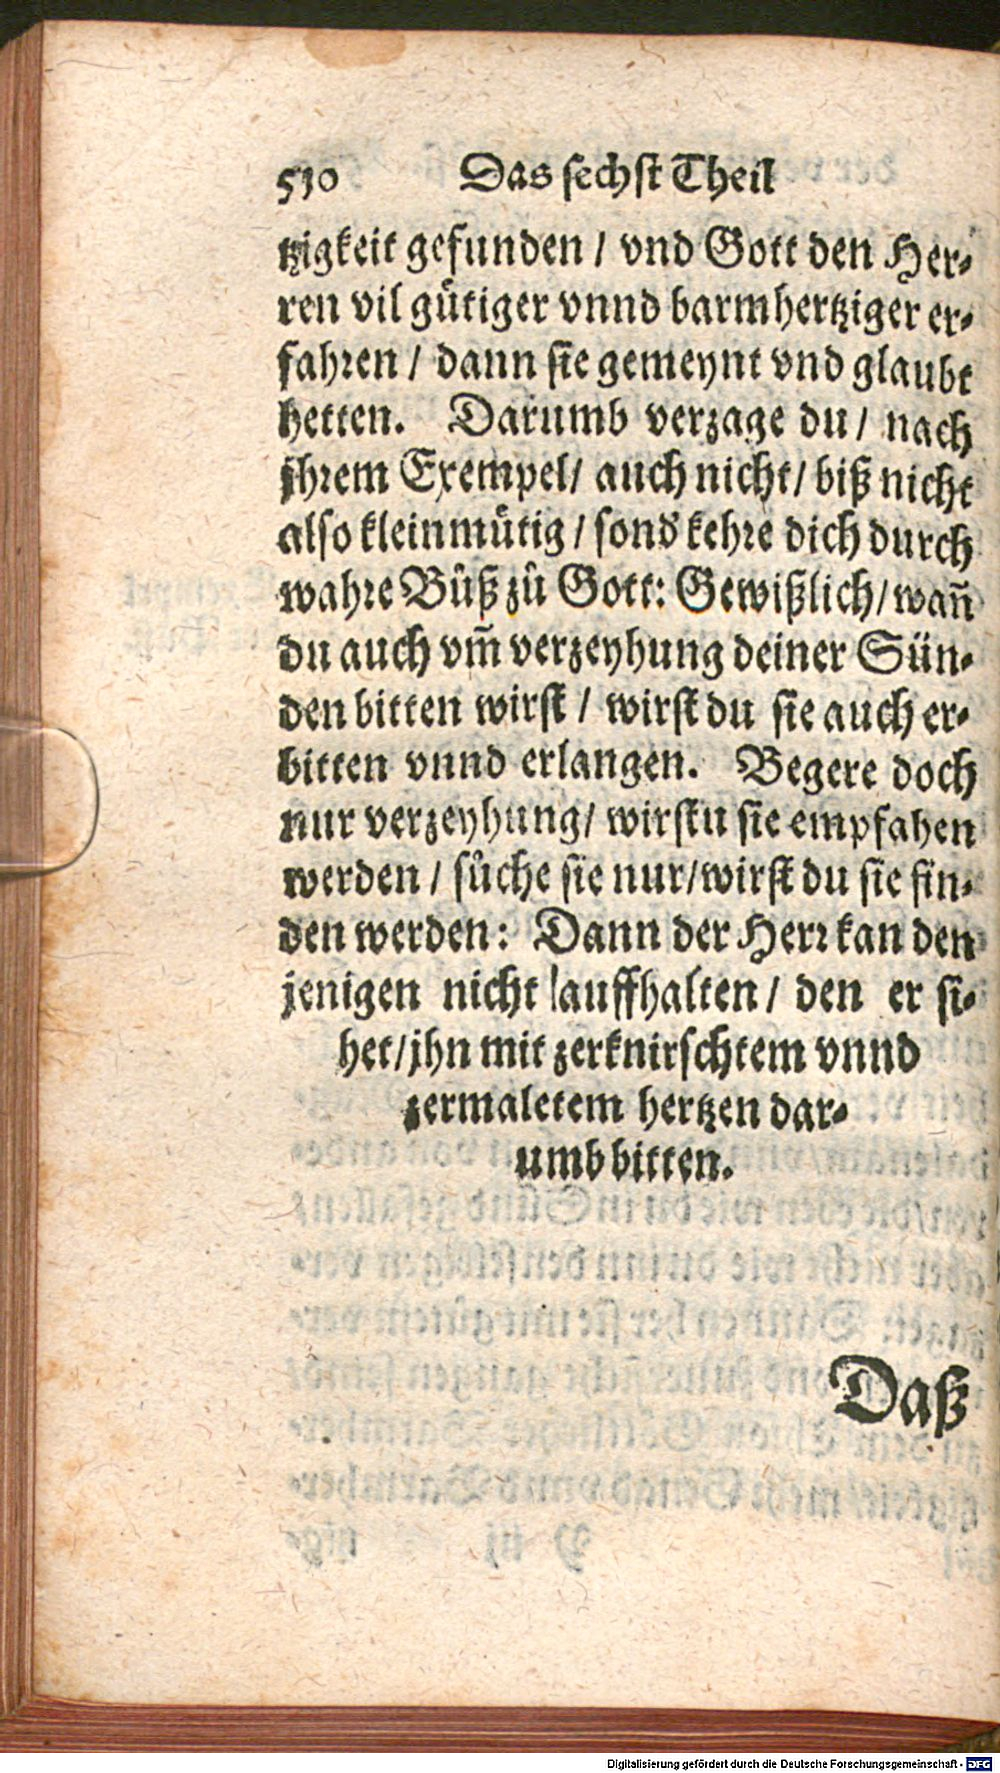 510 Das sechst Theil
tzigkeit gefunden / vnd Gott den Her-
ren vil gütiger vnnd barmhertziger er-
fahren / dann sie gemeynt vnd glaubt
hetten. Darumb verzage du / nach
jhrem Exempel / auch nicht / biß nicht
also kleinmütig / sond' kehre dich durch
wahre Bůß zů Gott: Gewißlich / wañ
du auch vm̃ verzeyhung deiner Sün-
den bitten wirst / wirst du sie auch er-
bitten vnnd erlangen. Begere doch
nur verzeyhung / wirstu sie empfahen
werden / sůche sie nur / wirst du sie fin-
den werden: Dann der Herr kan den
jenigen nicht auffhalten / den er si-
het / jhn mit zerknirschtem vnnd
zermaletem hertzen dar-
umb bitten.
Daß
Digitalisierung gefördert durch die Deutsche Forschungsgemeinschaft - DFG